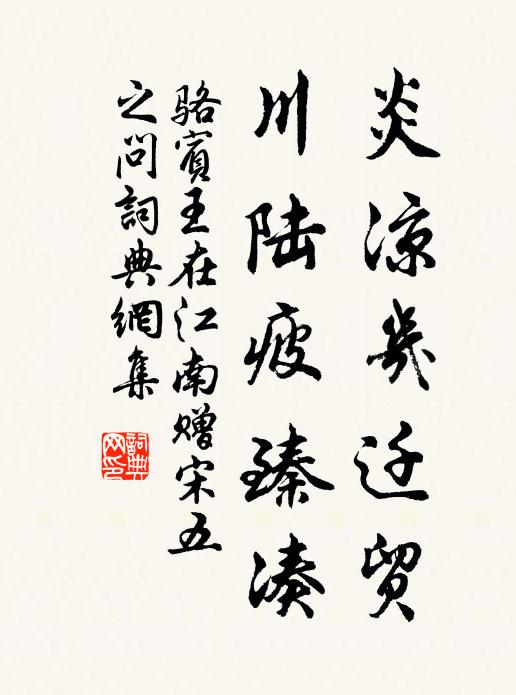 炎涼幾迁貿
川陆疲臻湊
骆賓王在江南赠宋五
之问詞典網集
詞典
网印